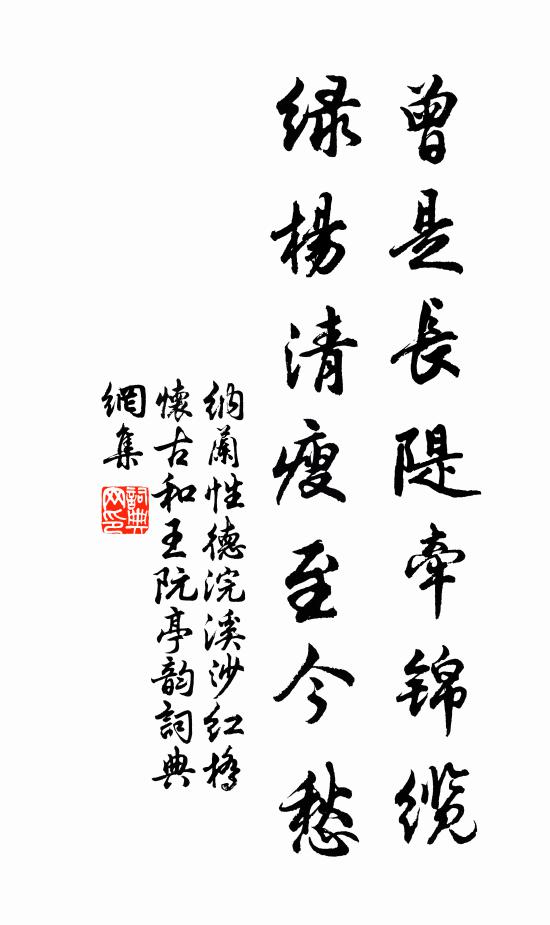 曾是長隄牽錦纜
绿楊清瘦至今愁
納蘭性德浣溪沙红橋
懷古和王阮亭韵詞典
網集
詞典
网印